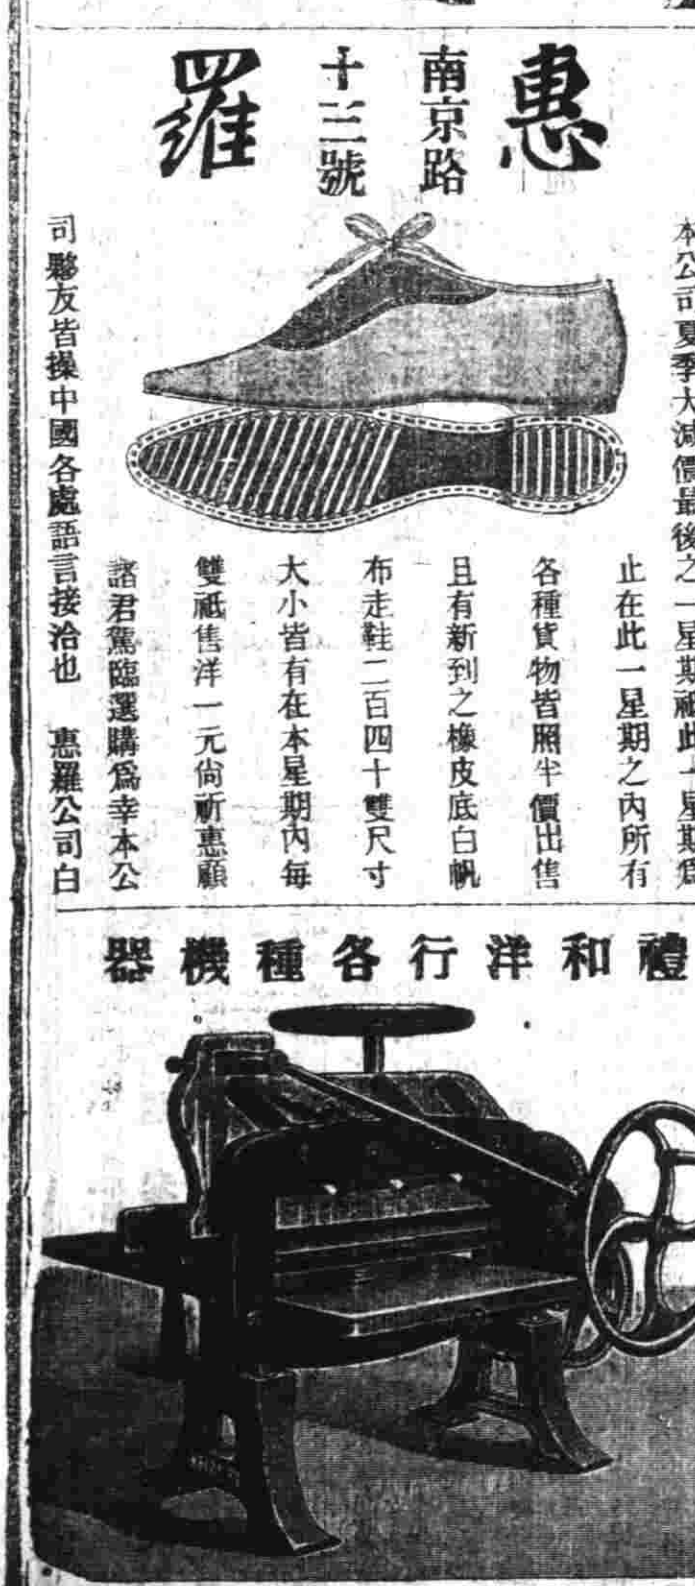 惠羅
南京路
十三號
本公司夏季大減價最後之一星期祇此一星期爲
止在此一星期之內所有
各種貨物皆照半價出售
且有新到之橡皮底白帆
布走鞋二百四十雙尺寸
大小皆有在本星期內每
雙祇售洋一元尙祈惠顧
諸君駕臨選購爲幸本公
司夥友皆操中國各處語言接洽也 惠羅公司白
禮和洋行各種機器